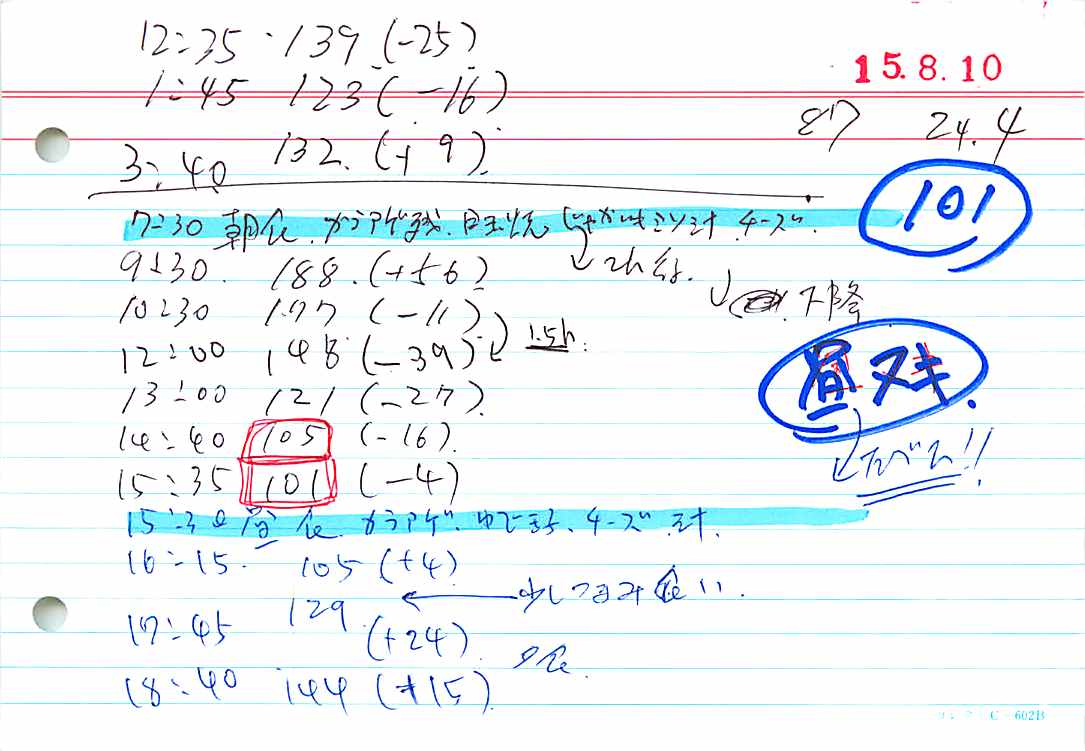 12:35 139 (-25)
15.8.10
1:45 123 (-16)
87 24.4
3:40 132. (+9).
101
7:30 朝食. カラアゲ残. 目玉焼. チーズ.
9:30. 188. (+56)
2h後.
10:30 177 (-11)
下降
12:00 148 (-39)
1.5h.
13:00 121 (-27).
昼ヌキ.
14:40 105 (-16).
タベル!!
15:35 101 (-4)
15:30 昼食. カラアゲ. ゆで玉. チーズ.
16:15. 105 (+4)
少しつまみ食い.
17:45 129. (+24).
夕食.
18:40 144 (+15).
C-602B